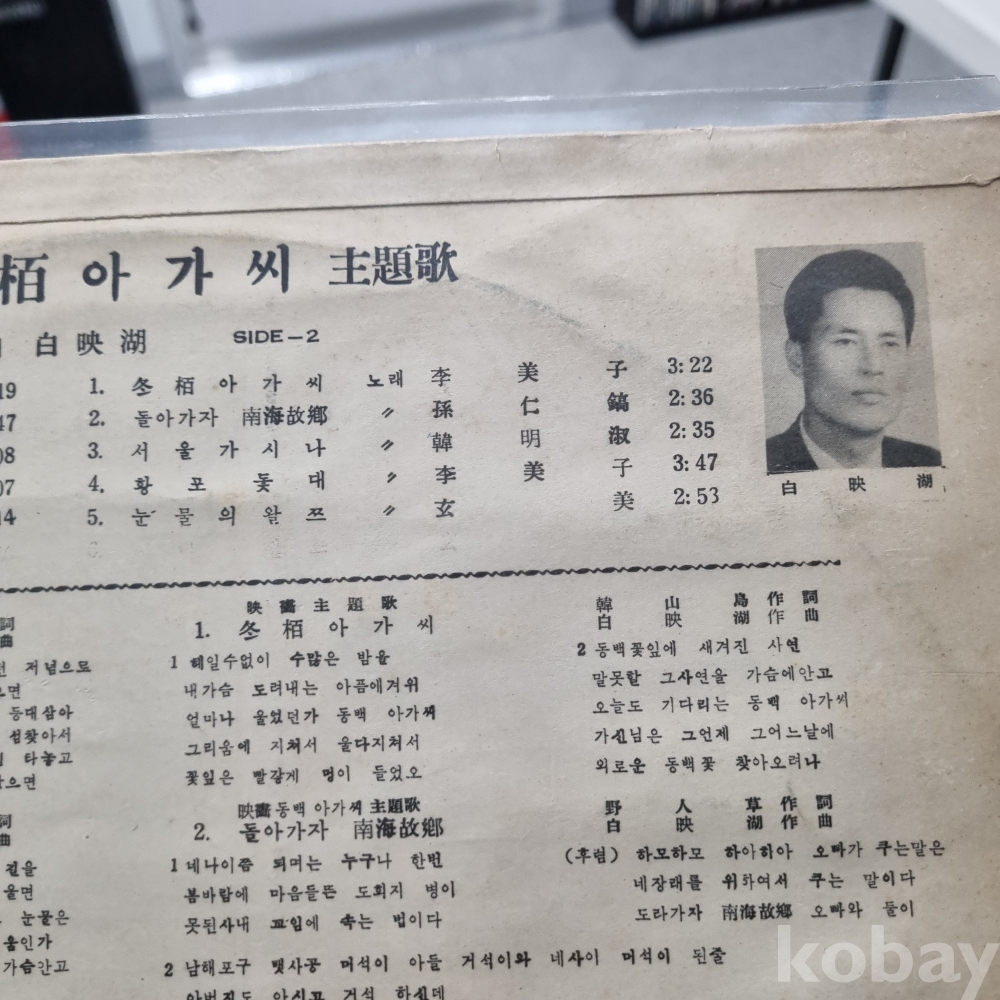 栢 아 가 씨 主題歌
白 映 湖 SIDE-2
19 1. 冬 栢 아 가 씨 노래 李 美 子 3:22
47 2. 돌아가자 南海故鄕 〃 孫 仁 鎬 2:36
08 3. 서 울 가 시 나 〃 韓 明 淑 2:35
07 4. 황 포 돛 대 〃 李 美 子 3:47
14 5. 눈 물 의 왈 쯔 〃 玄 美 2:53
白 映 湖
詞
曲
저념으로
으면
등대삼아
섬찾아서
타놓고
으면
映 畵 主 題 歌
1. 冬 栢 아 가 씨
韓 山 島 作 詞
白 映 湖 作 曲
1 헤일수없이 수많은 밤을
내가슴 도려내는 아픔에겨워
얼마나 울었던가 동백 아가씨
그리움에 지쳐서 울다지쳐서
꽃잎은 빨갛게 멍이 들었오
2 동백꽃잎에 새겨진 사연
말못할 그사연을 가슴에안고
오늘도 기다리는 동백 아가씨
가신님은 그언제 그어느날에
외로운 동백꽃 찾아오려나
詞
曲
길을
울면
눈물은
움인가
가슴안고
映畵 동백 아가씨 主題歌
2. 돌아가자 南海故鄕
野 人 草 作 詞
白 映 湖 作 曲
1 네나이쯤 되며는 누구나 한번
봄바람에 마음들뜬 도회지 병이
못된사내 꼬임에 속는 법이다
(후렴) 하모하모 하아하아 오빠가 주는말은
네장래를 위하여서 주는 말이다
도라가자 南海故鄕 오빠와 둘이
2 남해포구 뱃사공 머석이 아들 거석이와 네사이 머석이 된줄
아버지도 아시고 거석 하신데
kobay